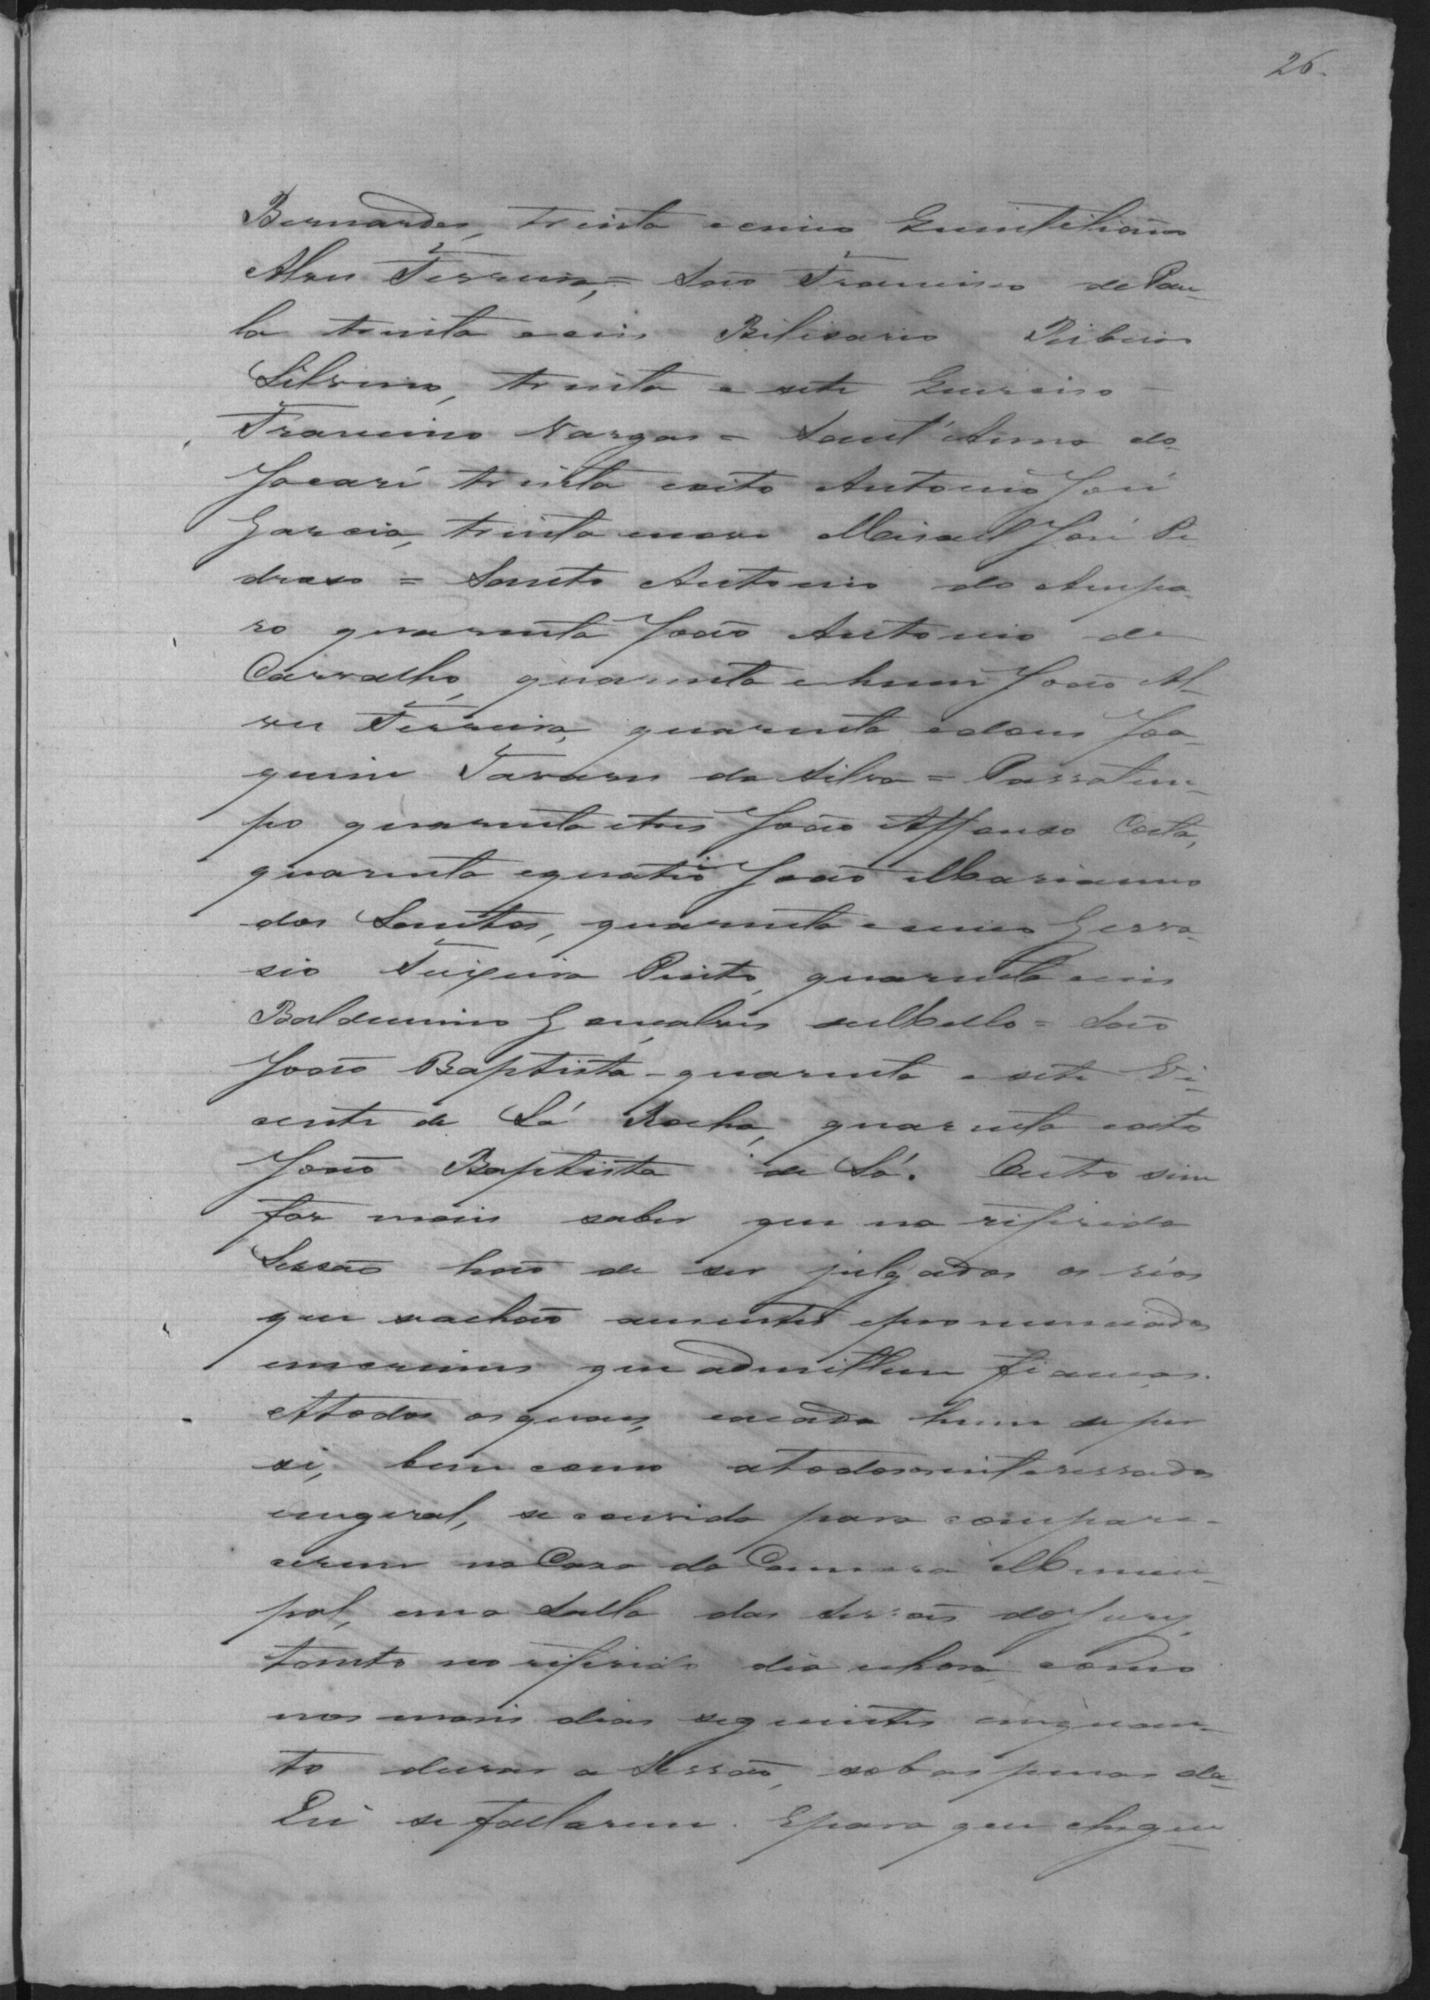 26.
Bernardes, trinta e cinco Quintiliano
Alves Ferreira, = São Francisco de Pau-
la trinta e seis Bilisario Ribeiro
Silverio, trinta e sete
Francisco Vargas = Sant'Anna do
Jacaré trinta e oito Antonio José
Garcia, trinta e nove Misael José Pe
droso = Santo Antonio do Ampa-
ro quarenta João Antonio de
Carvalho, quarenta e hum João Al-
ves Ferreira, quarenta e dous Joa-
quim Tavares da Silva = Passatem-
po quarenta e tres João Affonso Costa,
quarenta e quatro João Marianno
dos Santos, quarenta e cinco Gerva-
sio Teixeira Pinto, quarenta e seis
Balduino Gonçalves de Mello = São
João Baptista - quarenta e sete Vi-
cente de Sá Rocha, quarenta e oito
João Baptista de Sá. Outro sim
faz mais saber que na referida
Sessão hão de ser julgados os réos
que se achão ausentes e pronunciados
em crimes que admittem fiança.
A todos os quaes, e a cada hum de per
si, bem como a todos os interessados
em geral, se convida para compare-
cerem na Casa da Camara Munici-
pal, em a Salla das Sessões do Jury,
tanto no referido dia e hora, como
nos mais dias seguintes emquan-
to durar a Sessão, sob as penas da
Lei se faltarem. E para que chegue